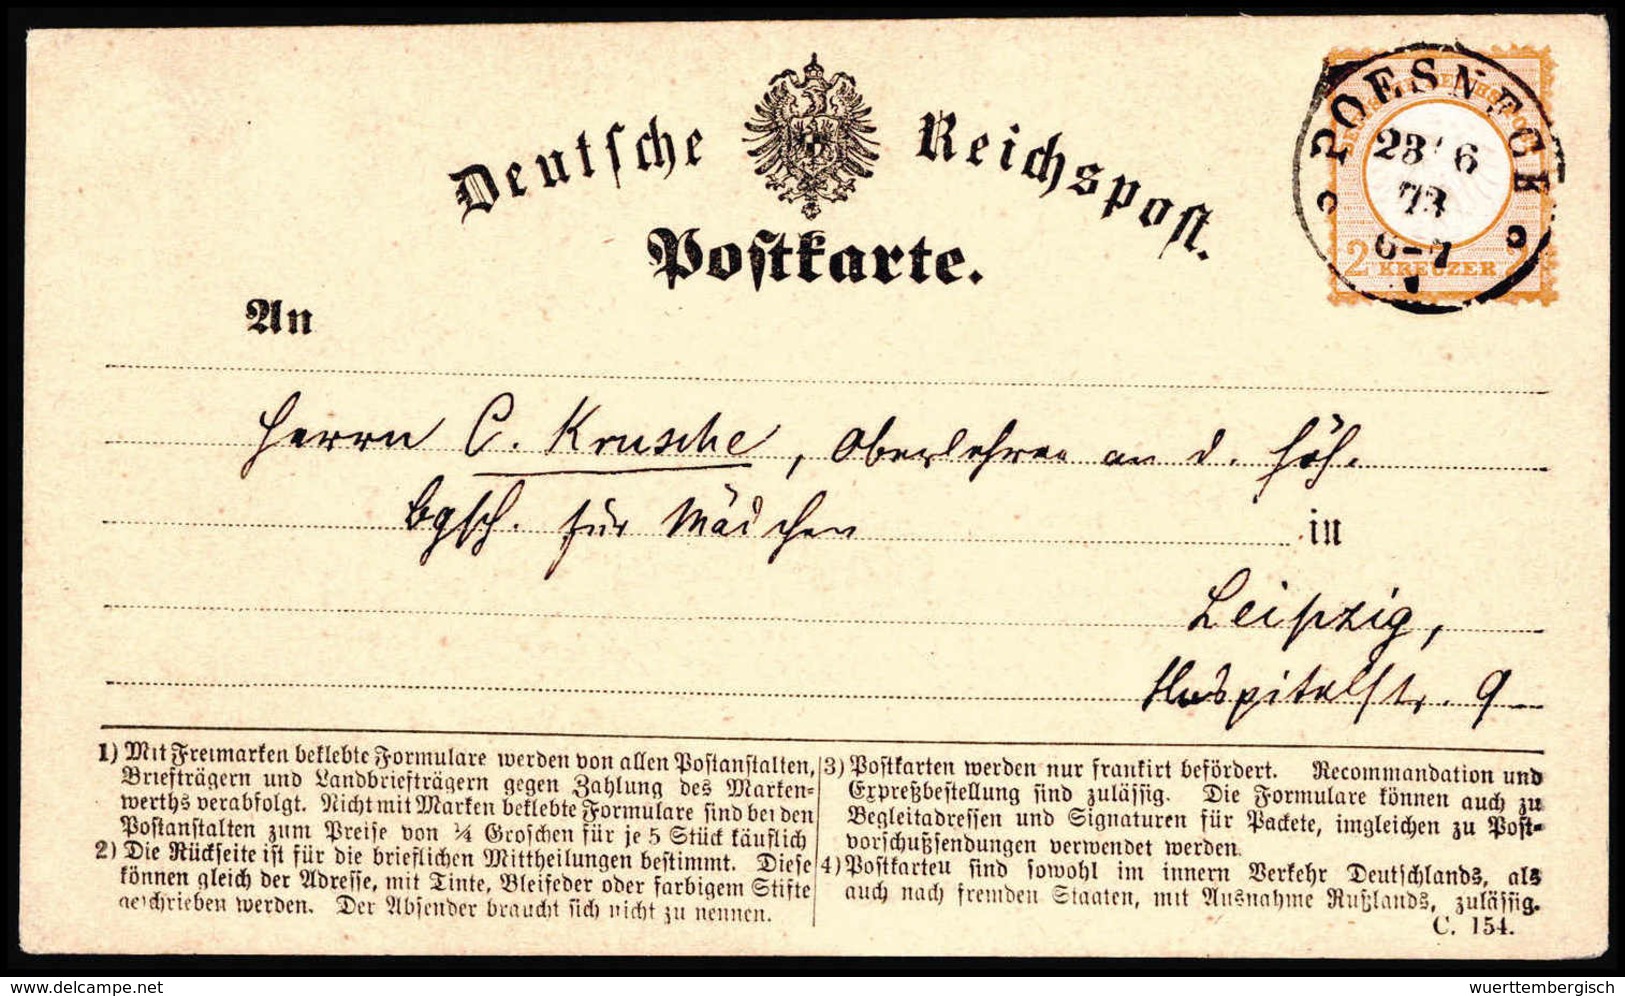 Deutsche Reichspost.
Postkarte.
POESNECK
23/6
73
6-7
2 KREUZER 2
An
Herrn C. Krusche, Oberlehrer an d. höh.
Bgsch. für Mädchen in
Leipzig,
Hospitalstr. 9
1) Mit Freimarken beklebte Formulare werden von allen Postanstalten,
Briefträgern und Landbriefträgern gegen Zahlung des Marken-
werths verabfolgt. Nicht mit Marken beklebte Formulare sind bei den
Postanstalten zum Preise von ¼ Groschen für je 5 Stück käuflich
2) Die Rückseite ist für die brieflichen Mittheilungen bestimmt. Diese
können gleich der Adresse, mit Tinte, Bleifeder oder farbigem Stifte
geschrieben werden. Der Absender braucht sich nicht zu nennen.
3) Postkarten werden nur frankirt befördert. Recommandation und
Expreßbestellung sind zulässig. Die Formulare können auch zu
Begleitadressen und Signaturen für Packete, imgleichen zu Post-
vorschußsendungen verwendet werden.
4) Postkarten sind sowohl im innern Verkehr Deutschlands, als
auch nach fremden Staaten, mit Ausnahme Rußlands, zulässig.
C. 154.
www.delcampe.net
wuerttembergisch